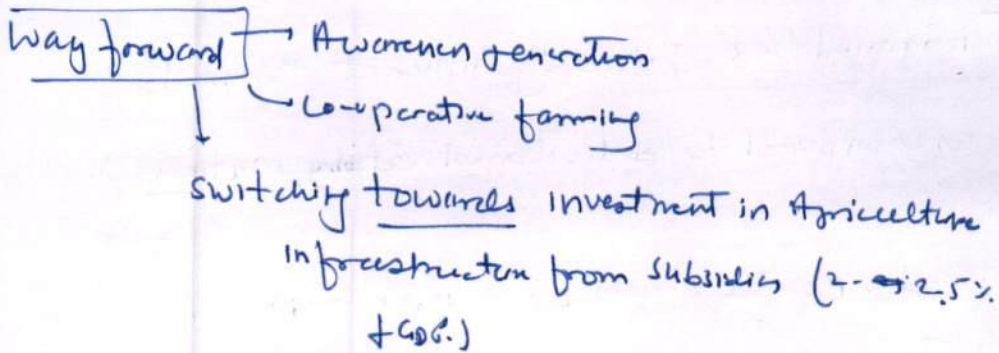 Way forward → Awareness generation
→ Co-operative farming
Switching towards investment in Agriculture
infrastructure from subsidies (2-2.5%
of GDP.)